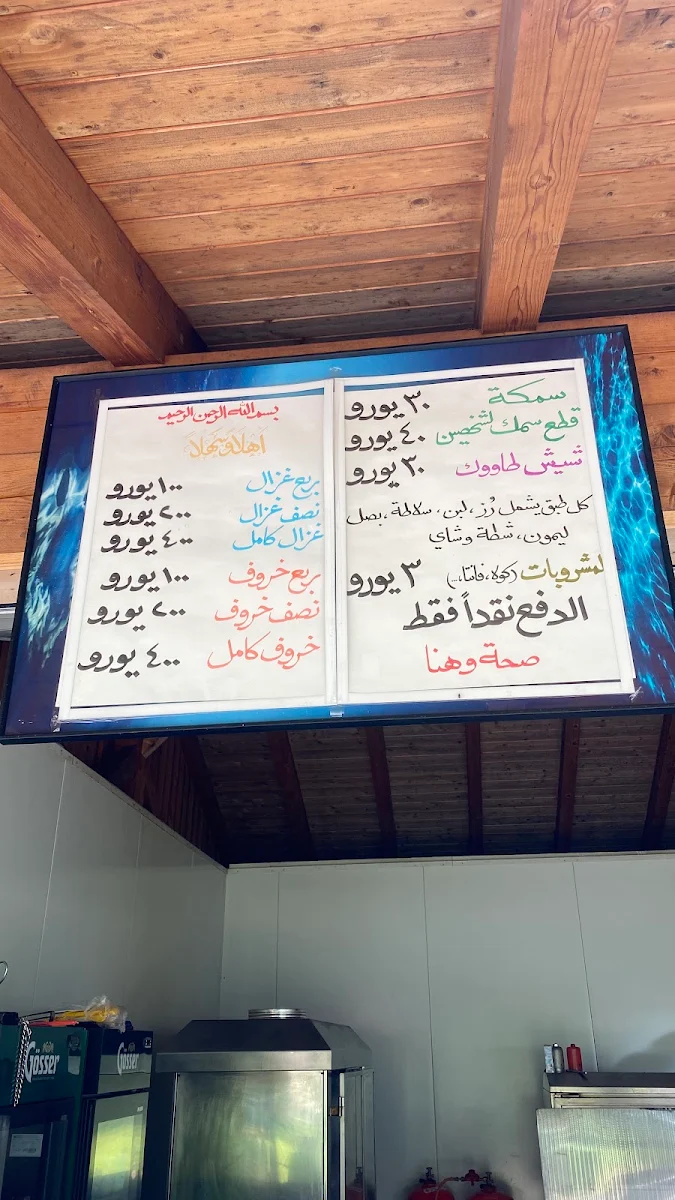 بسم الله الرحمن الرحيم
أهلا وسهلا
ربع غزال ١٠٠ يورو
نصف غزال ٢٠٠ يورو
غزال كامل ٤٠٠ يورو
ربع خروف ١٠٠ يورو
نصف خروف ٢٠٠ يورو
خروف كامل ٤٠٠ يورو
سمكة ٣٠ يورو
قطع سمك لشخصين ٤٠ يورو
شيش طاووك ٣٠ يورو
كل طبق يشمل رُز، لبن، سلاطة، بصل
ليمون، شطة وشاي
لمشروبات (كولا، فانتا،..) ٣ يورو
الدفع نقداً فقط
صحة وهنا
Gösser
Gösser